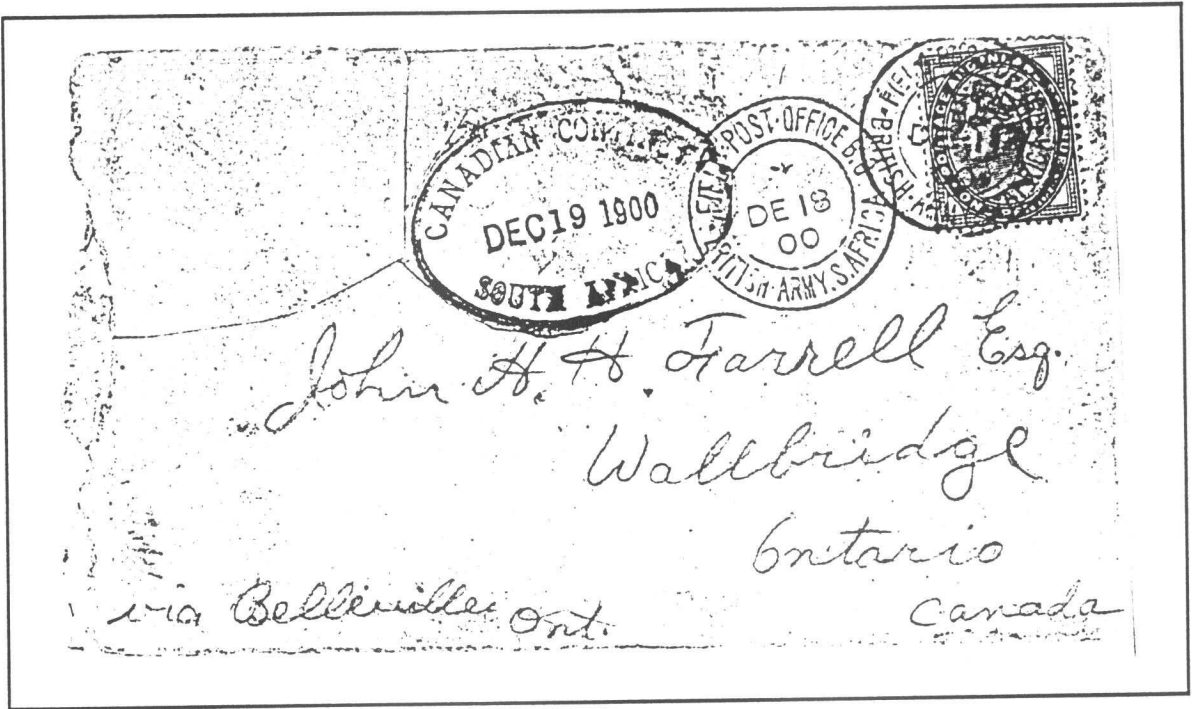 CANADIAN
DEC 19 1900
SOUTH AFRICA
FIELD POST·OFFICE B.O
DE 18
00
BRITISH·ARMY.S.AFRICA
BRITISH
John H. H. Farrell Esq.
Wallbridge
Ontario
Canada
via Belleville Ont.